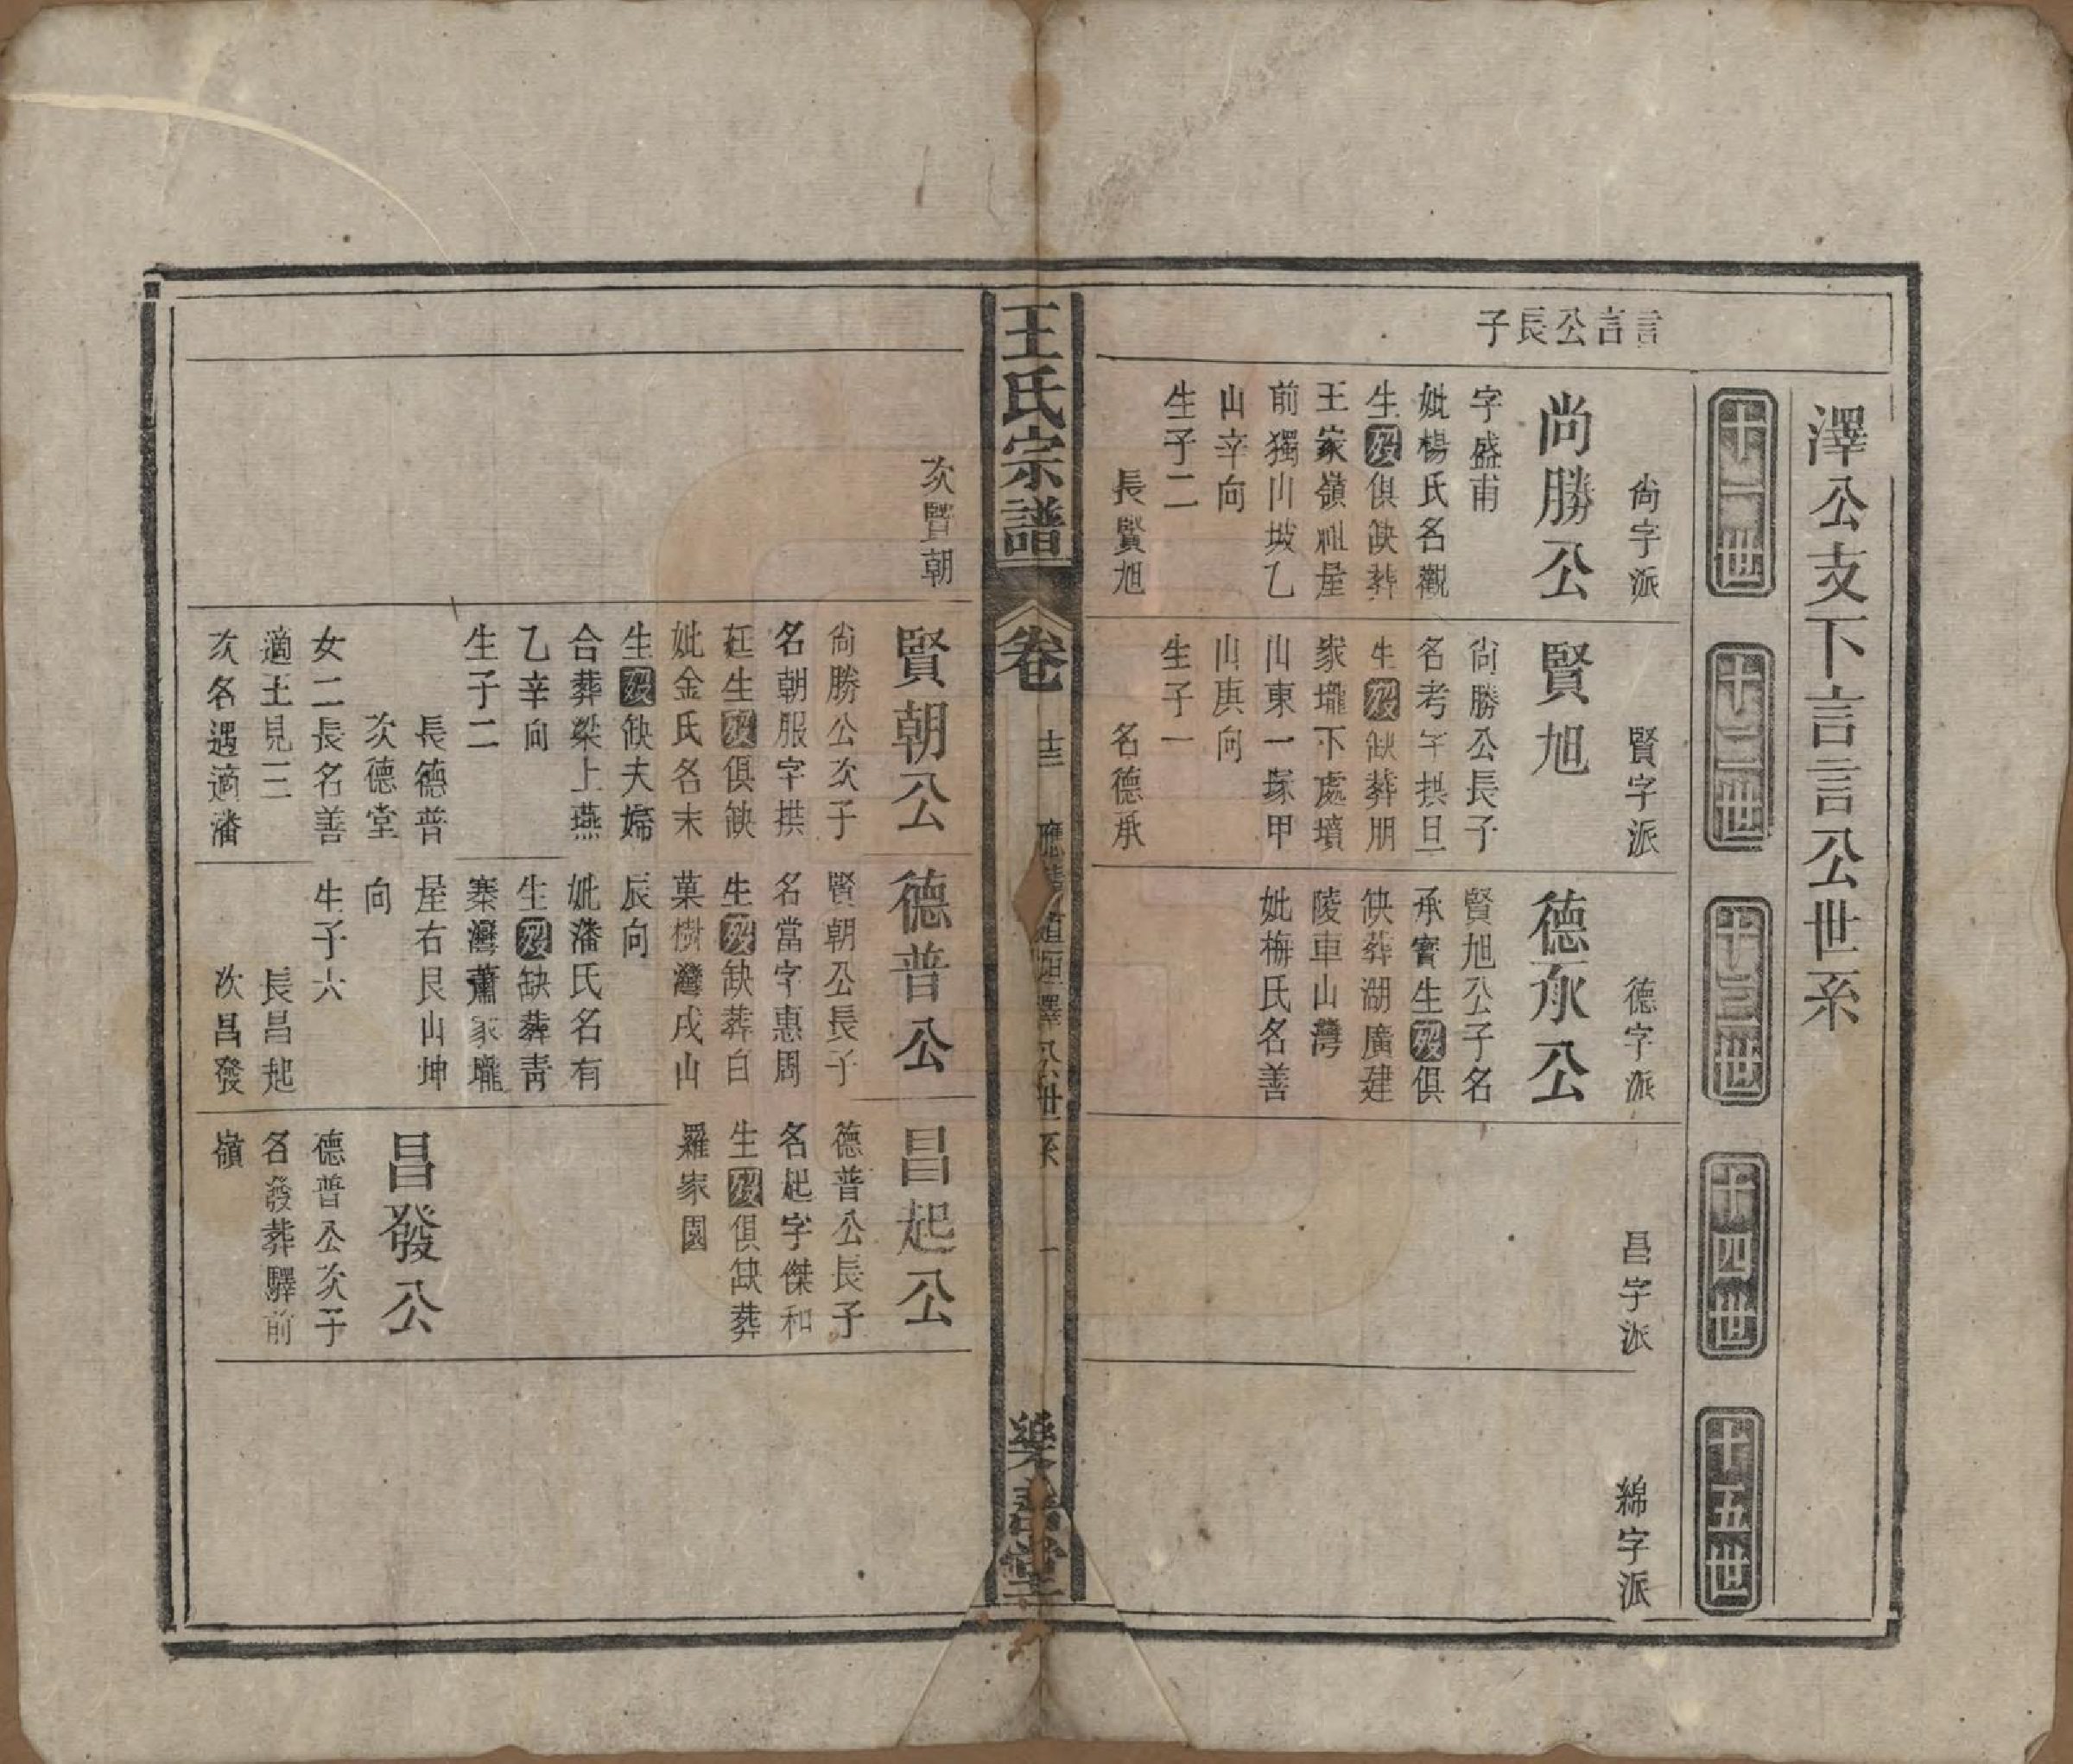 澤公支下言言公世系
十一世
十二世
十三世
十四世
十五世
言言公長子
尚字派
尚勝公
字盛甫
妣楊氏名觀
生歿俱缺葬
王家嶺祖屋
前獨山坡乙
山辛向
生子二
長賢旭
賢字派
賢旭
尙勝公長子
名考字拱旦
生歿缺葬朋
家壠下處墳
山東一塚甲
山庚向
生子一
名德承
德字派
德承公
賢旭公子名
承實生歿俱
缺葬湖廣建
陵車山灣
妣梅氏名善
昌字派
綿字派
王氏宗譜
卷
十三
澤公世系
一
樂善堂
次賢朝
賢朝公
尙勝公次子
名朝服字拱
廷生歿俱缺
妣金氏名末
生歿缺夫婦
合葬梁上燕
乙辛向
生子二
長德普
次德堂
女二長名善
適王見三
次名遇適潘
德普公
賢朝公長子
名當字惠周
生歿缺葬白
菓樹灣戌山
辰向
妣潘氏名有
生歿缺葬靑
寨灣蕭家壠
屋右艮山坤
向
生子六
長昌起
次昌發
昌起公
德普公長子
名起字傑和
生歿俱缺葬
羅家園
昌發公
德普公次子
名發葬驛前
嶺